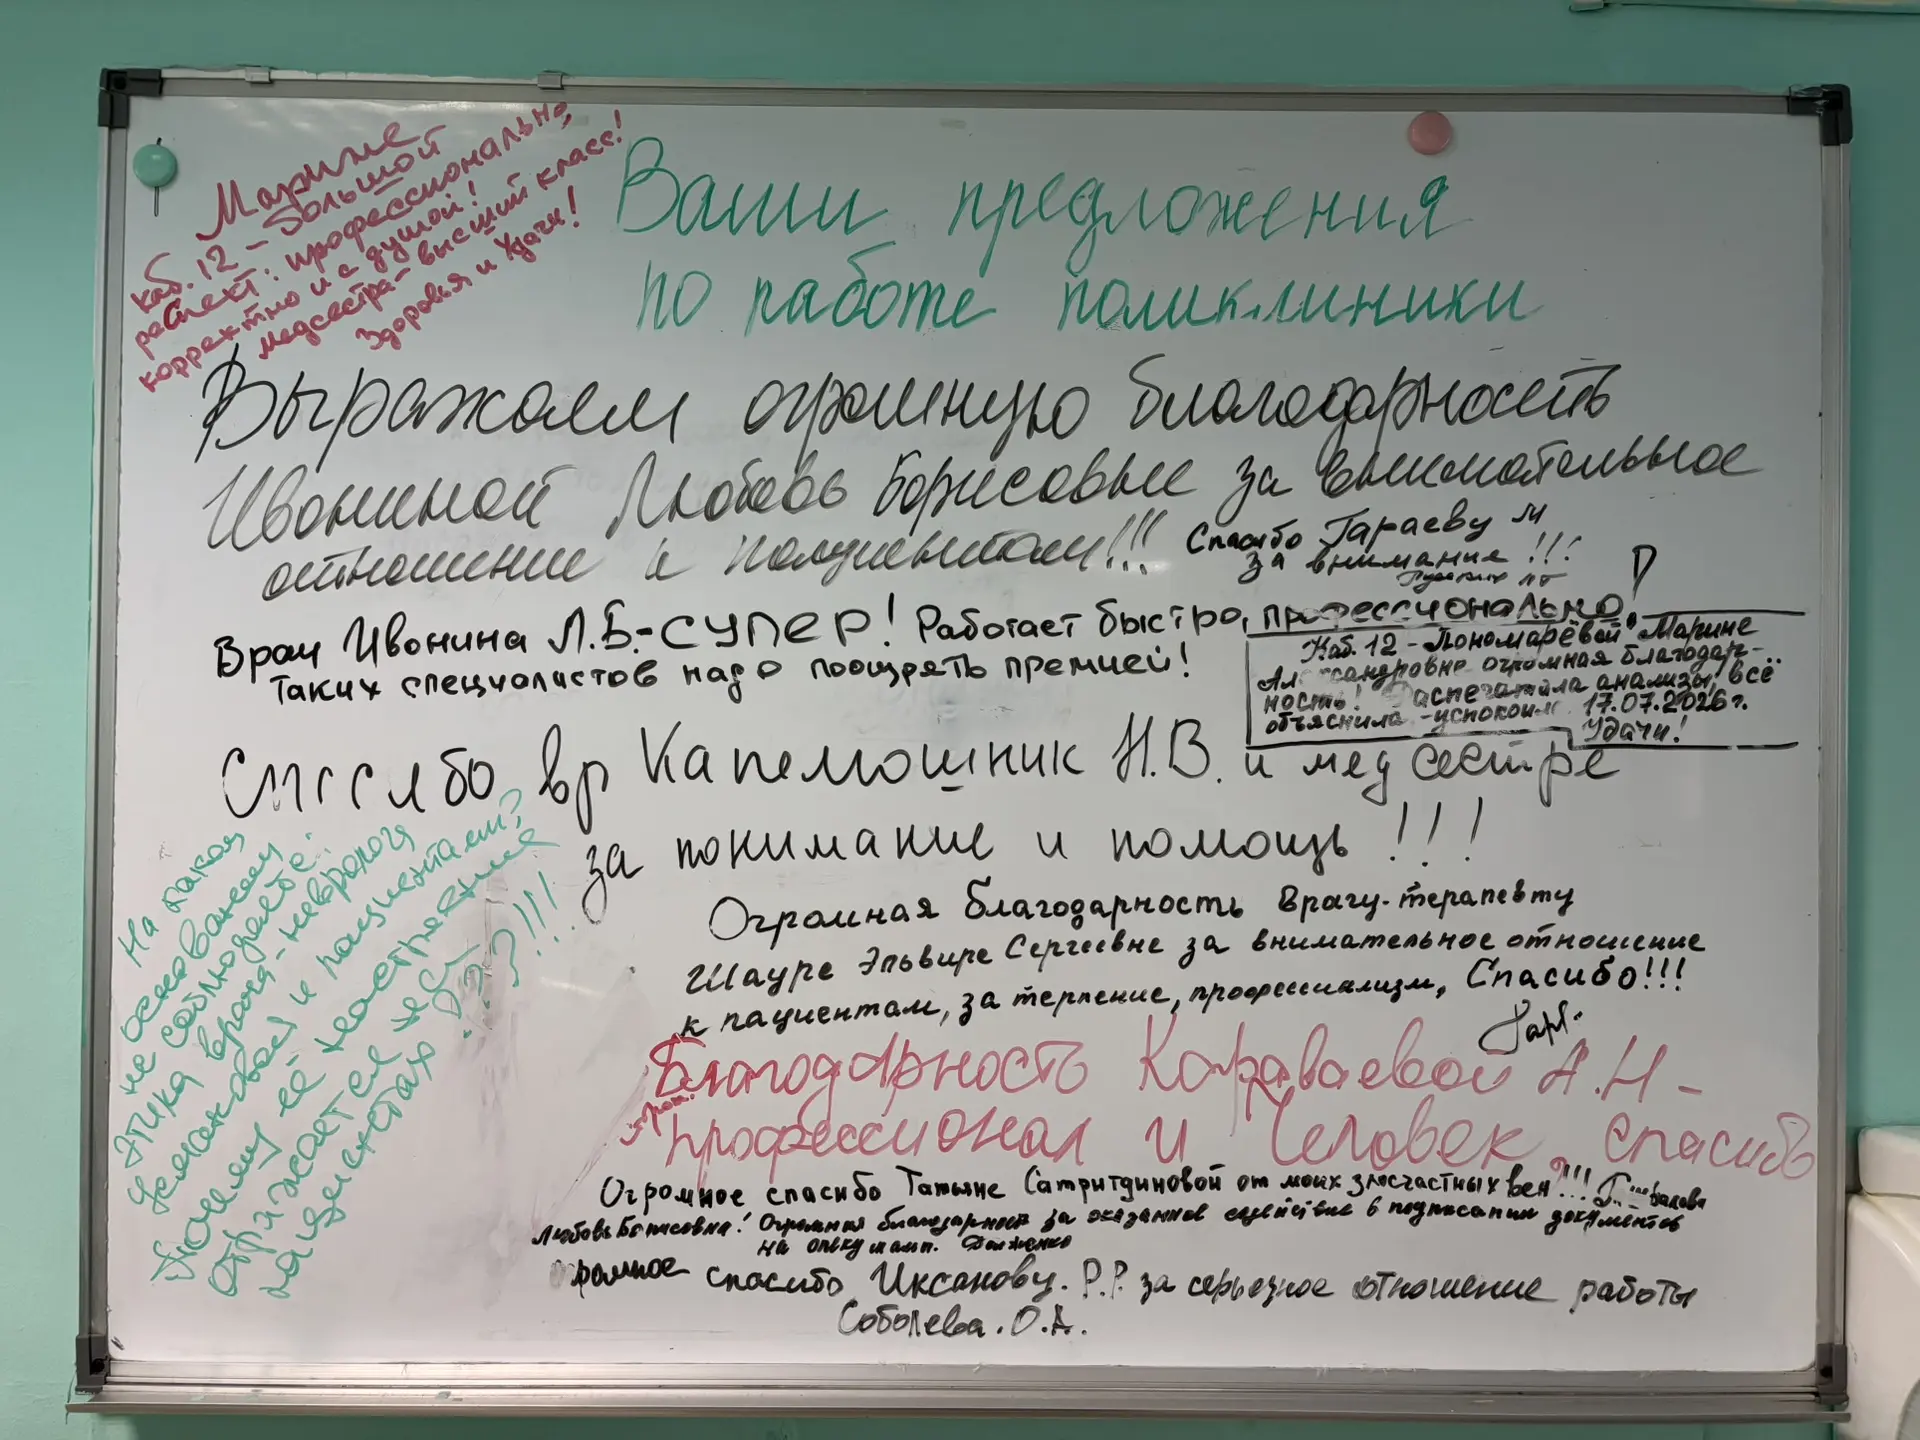 Марине
каб. 12 - большой
респект: профессионально,
корректно и с душой!
медсестра - высший класс!
Здоровья и Удачи!
Ваши предложения
по работе поликлиники
Выражаем огромную благодарность
Ивониной Любовь Борисовне за внимательное
отношение к пациентам!!!
Спасибо Гараеву М
за внимания !!!
Врач Ивонина Л.Б.-СУПЕР! Работает быстро, профессионально,
таких специалистов надо поощрять премией!
Каб. 12 - Пономарёвой Марине
Александровне огромная благодар-
ность! Распечатала анализы, всё
объяснила -успокоил 17.07.2026г.
Удачи!
Спасибо вр Капелюшник Н.В. и медсестре
за понимание и помощь !!!
На каком
основании
не соблюдаете:
этика врача-невролога
и пациентам?
Почему её настроение
отражается на
пациентах ...???!!!
Огромная благодарность врачу-терапевту
Шауре Эльвире Сергеевне за внимательное отношение
к пациентам, за терпение, профессиализм, Спасибо!!!
Благодарность Караваевой А.Н -
профессионал и Человек, спасибо
Огромное спасибо Татьяне Сатритдиновой от моих злосчастных вен!!!
Любовь Борисовна! Огромная благодарность за оказанное содействие в подписании документов
на опеку
Огромное спасибо Иксанову. Р.Р. за серьезное отношение работы
Соболева. О.А.